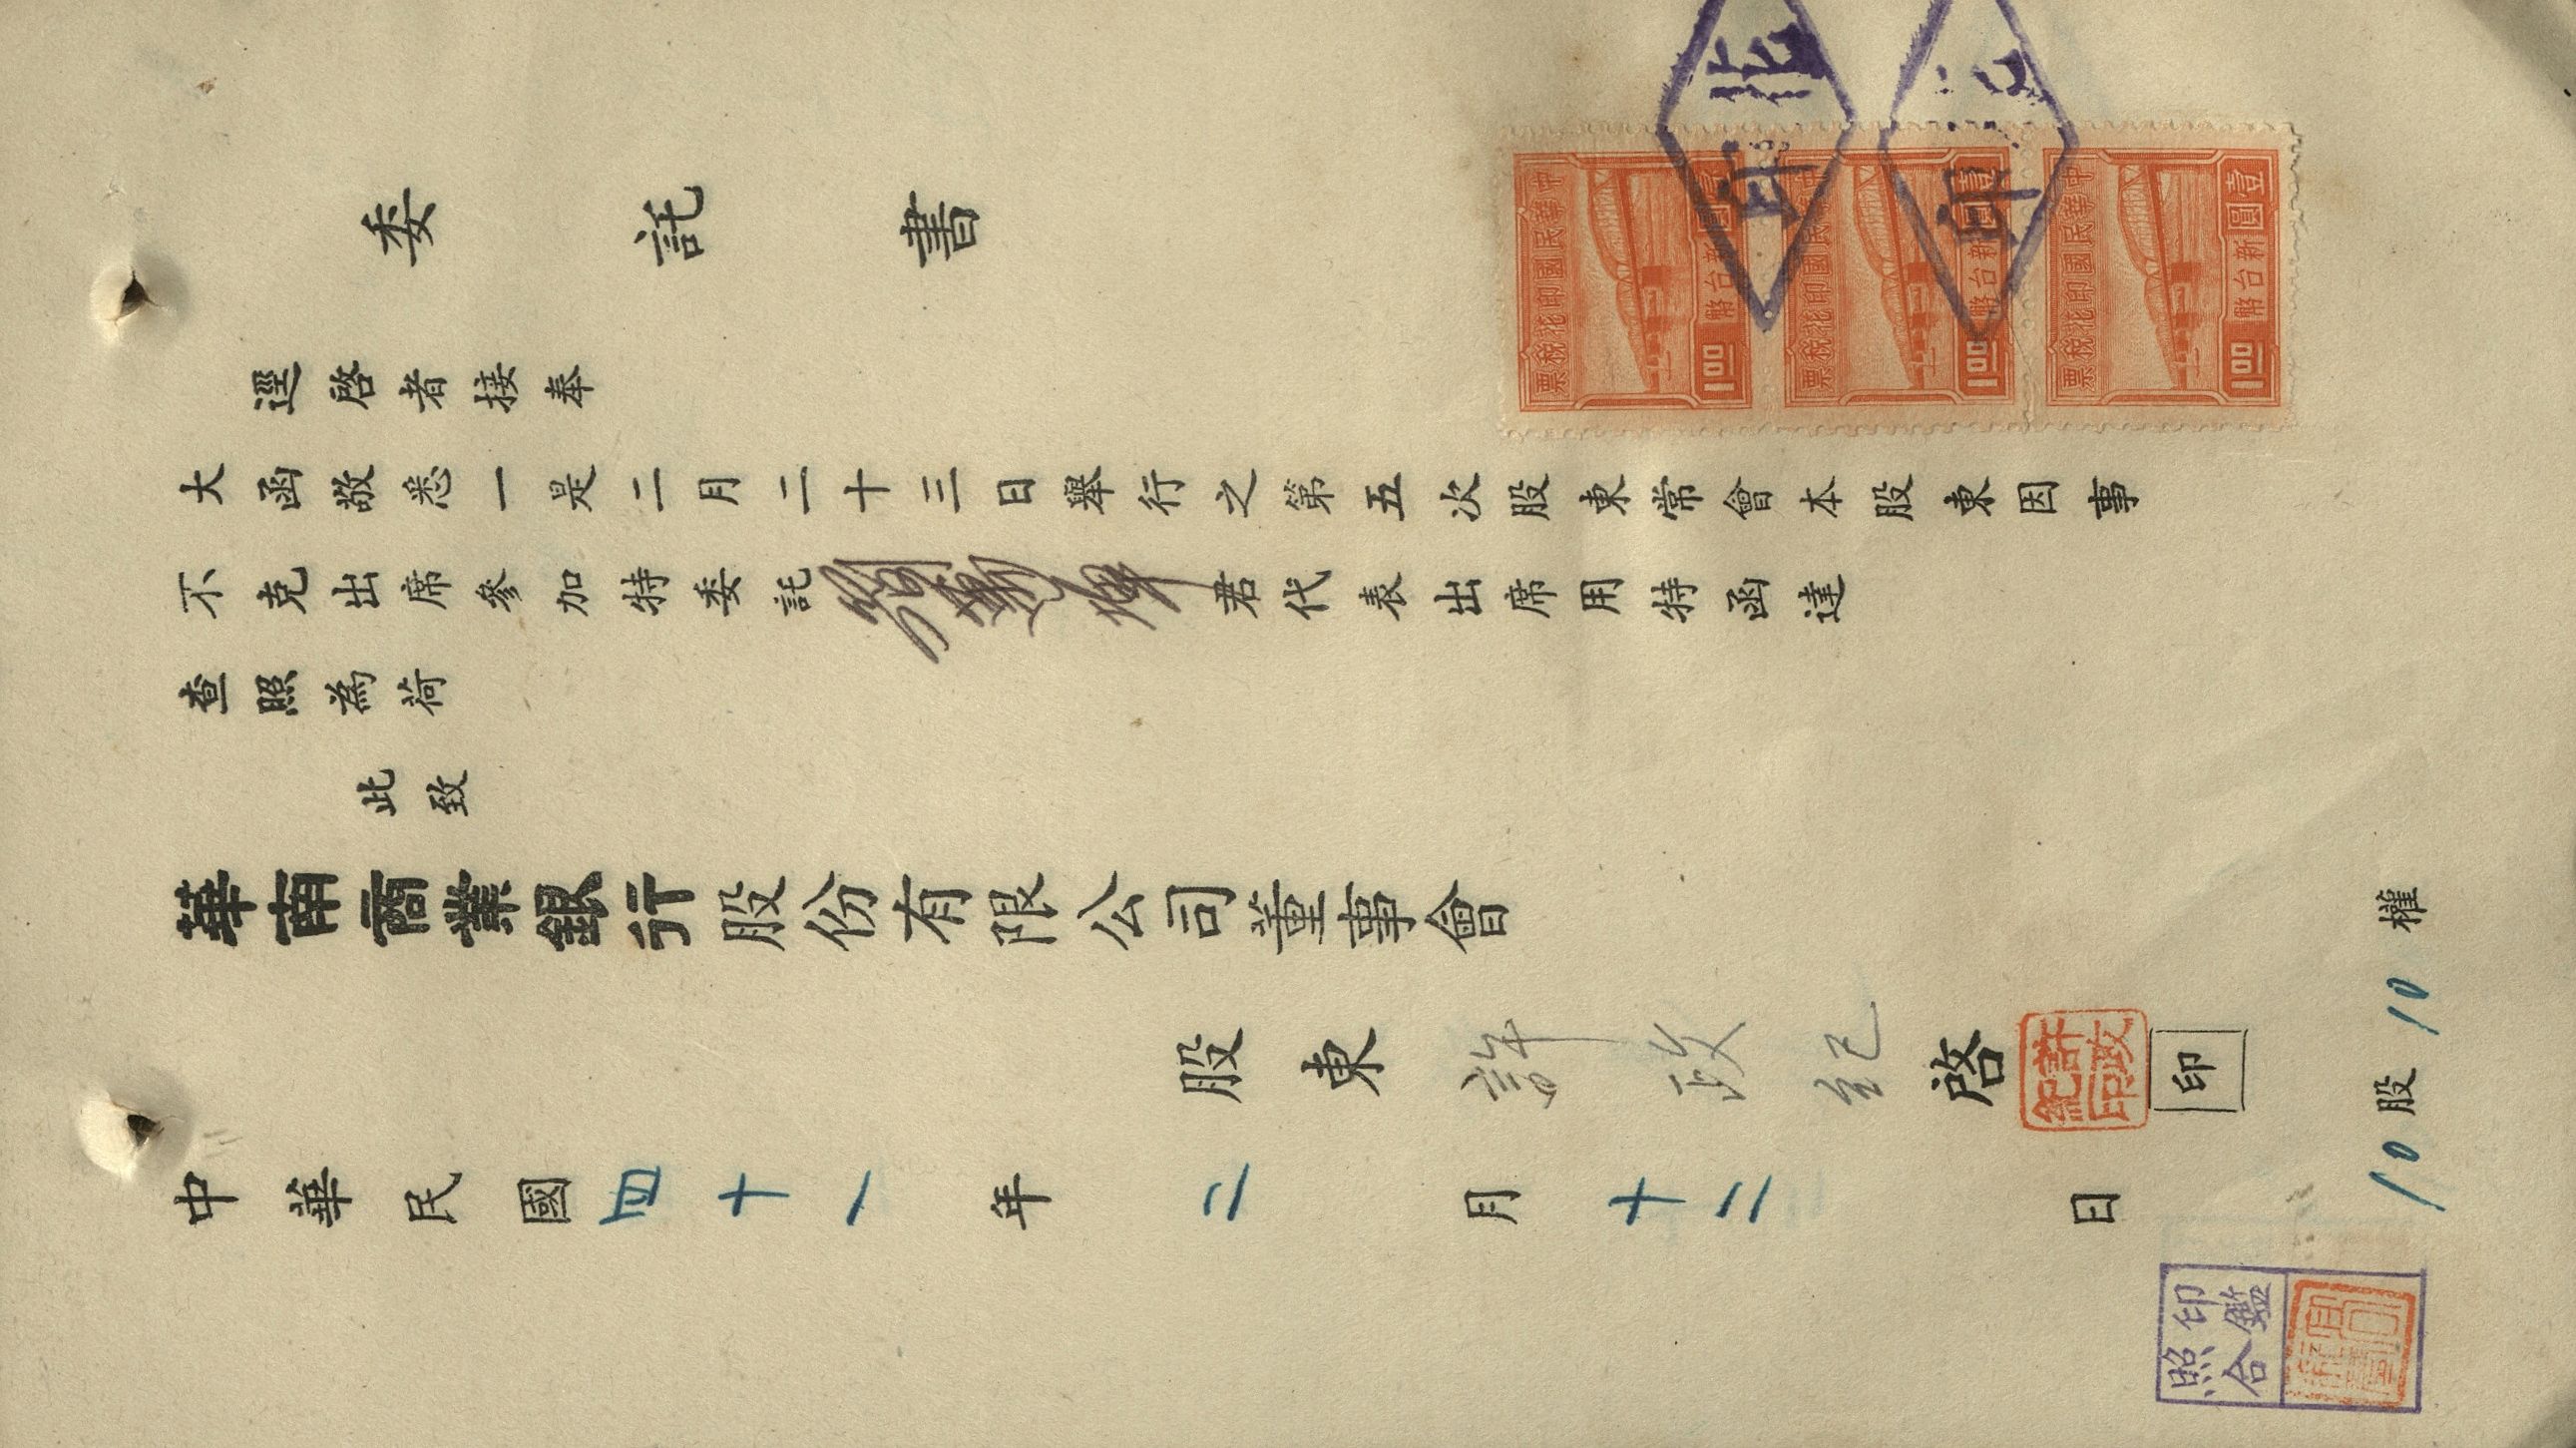 委託書
逕啓者接奉
大函敬悉一是二月二十三日舉行之第五次股東常會本股東因事
不克出席參加特委託君代表出席用特函達
查照為荷
此致
華南商業銀行股份有限公司董事會
股東許政紀啓 印
許政紀印
中華民國四十一年二月十二日
10股10權
中華民國印花稅票
新台幣壹圓
1.00
中華民國印花稅票
新台幣壹圓
1.00
中華民國印花稅票
新台幣壹圓
1.00
印鑑
照合